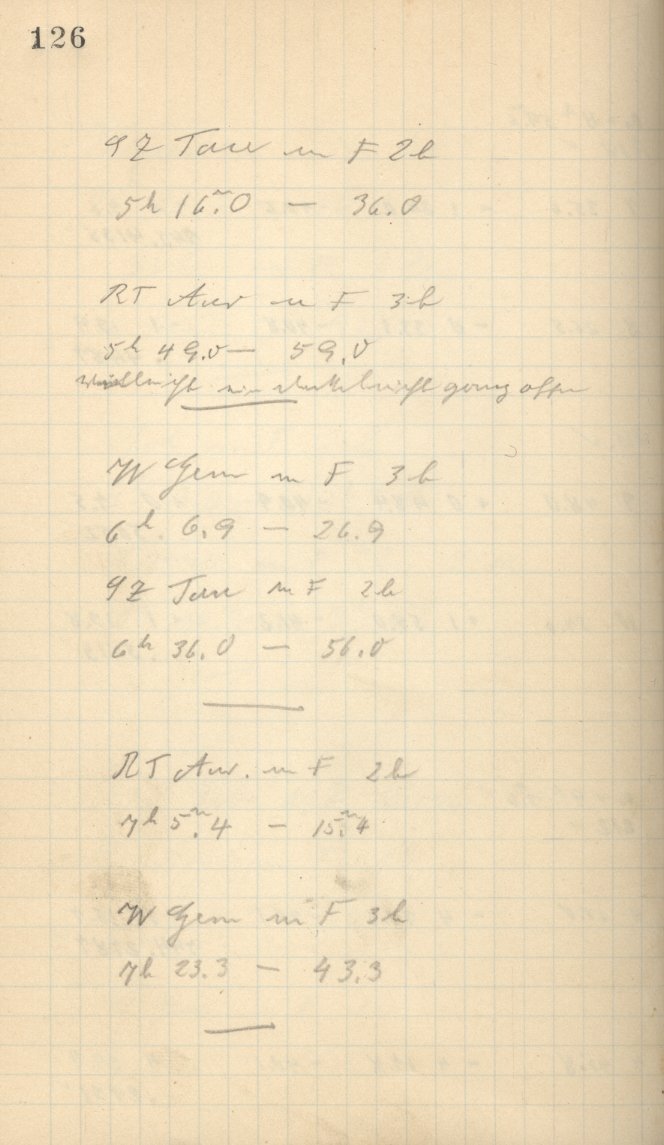 126
SZ Tau m F 2b
5h 16.ᵐ0 — 36.0
RT Aur m F 3b
5h 49.0 — 59.0
vielleicht nicht ganz offen
W Gem m F 3b
6h 6.9 — 26.9
SZ Tau m F 2b
6h 36.0 — 56.0
RT Aur. m F 2b
7h 5.ᵐ4 — 15.ᵐ4
W Gem m F 3b
7h 23.3 — 43.3